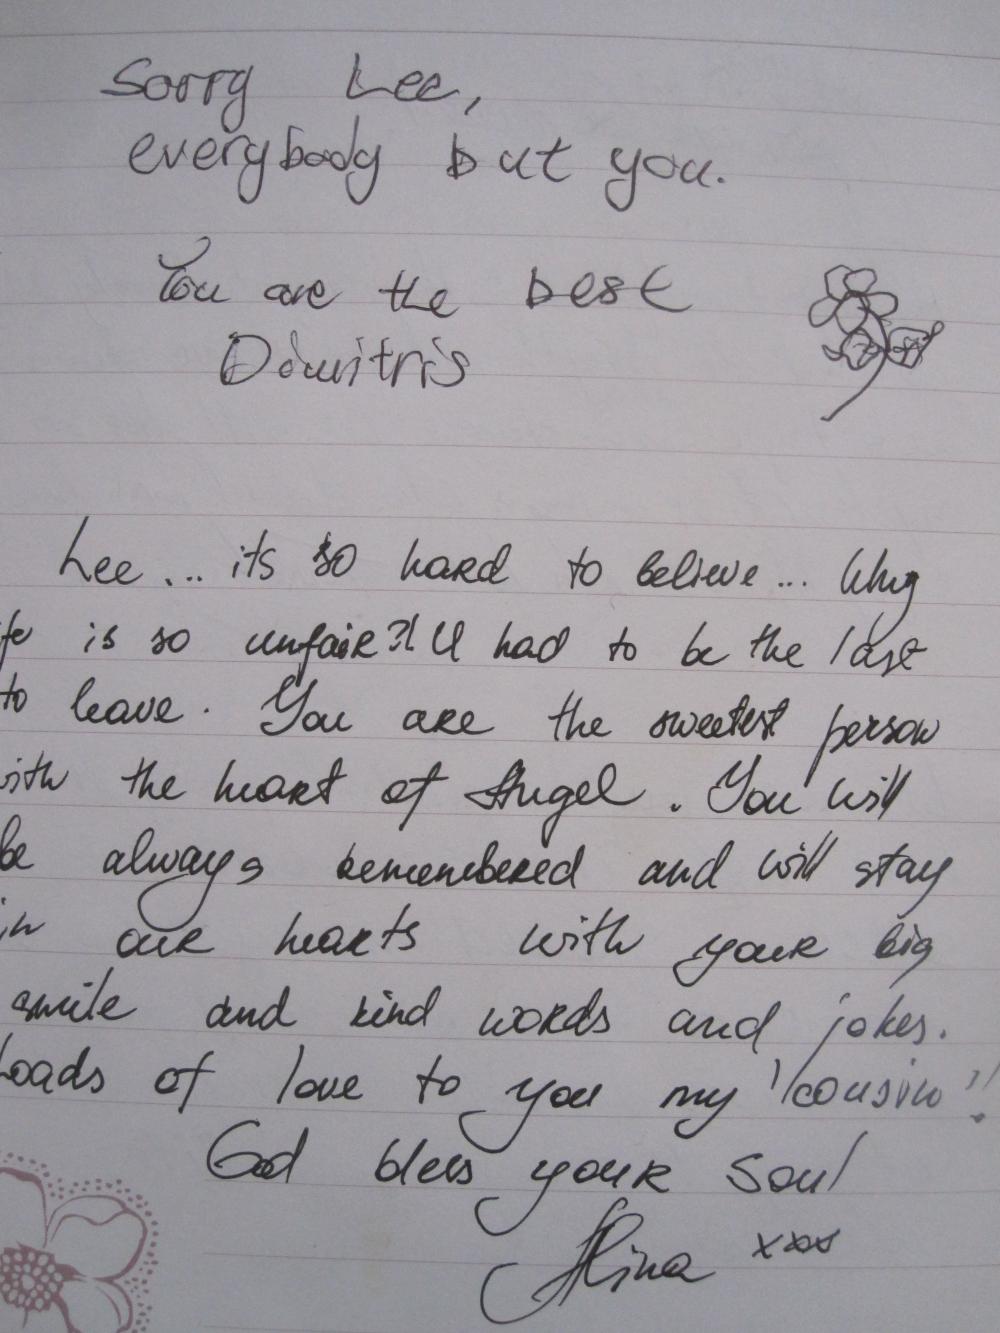 Sorry Lee,
everybody but you.
You are the best
Dimitris
Lee... its so hard to believe... Why
fe is so unfair?! U had to be the last
to leave. You are the sweetest person
with the heart of Angel. You will
be always remembered and will stay
in our hearts with your big
smile and kind words and jokes.
Loads of love to you my "cousin"!
God bless your soul
Alina xxx